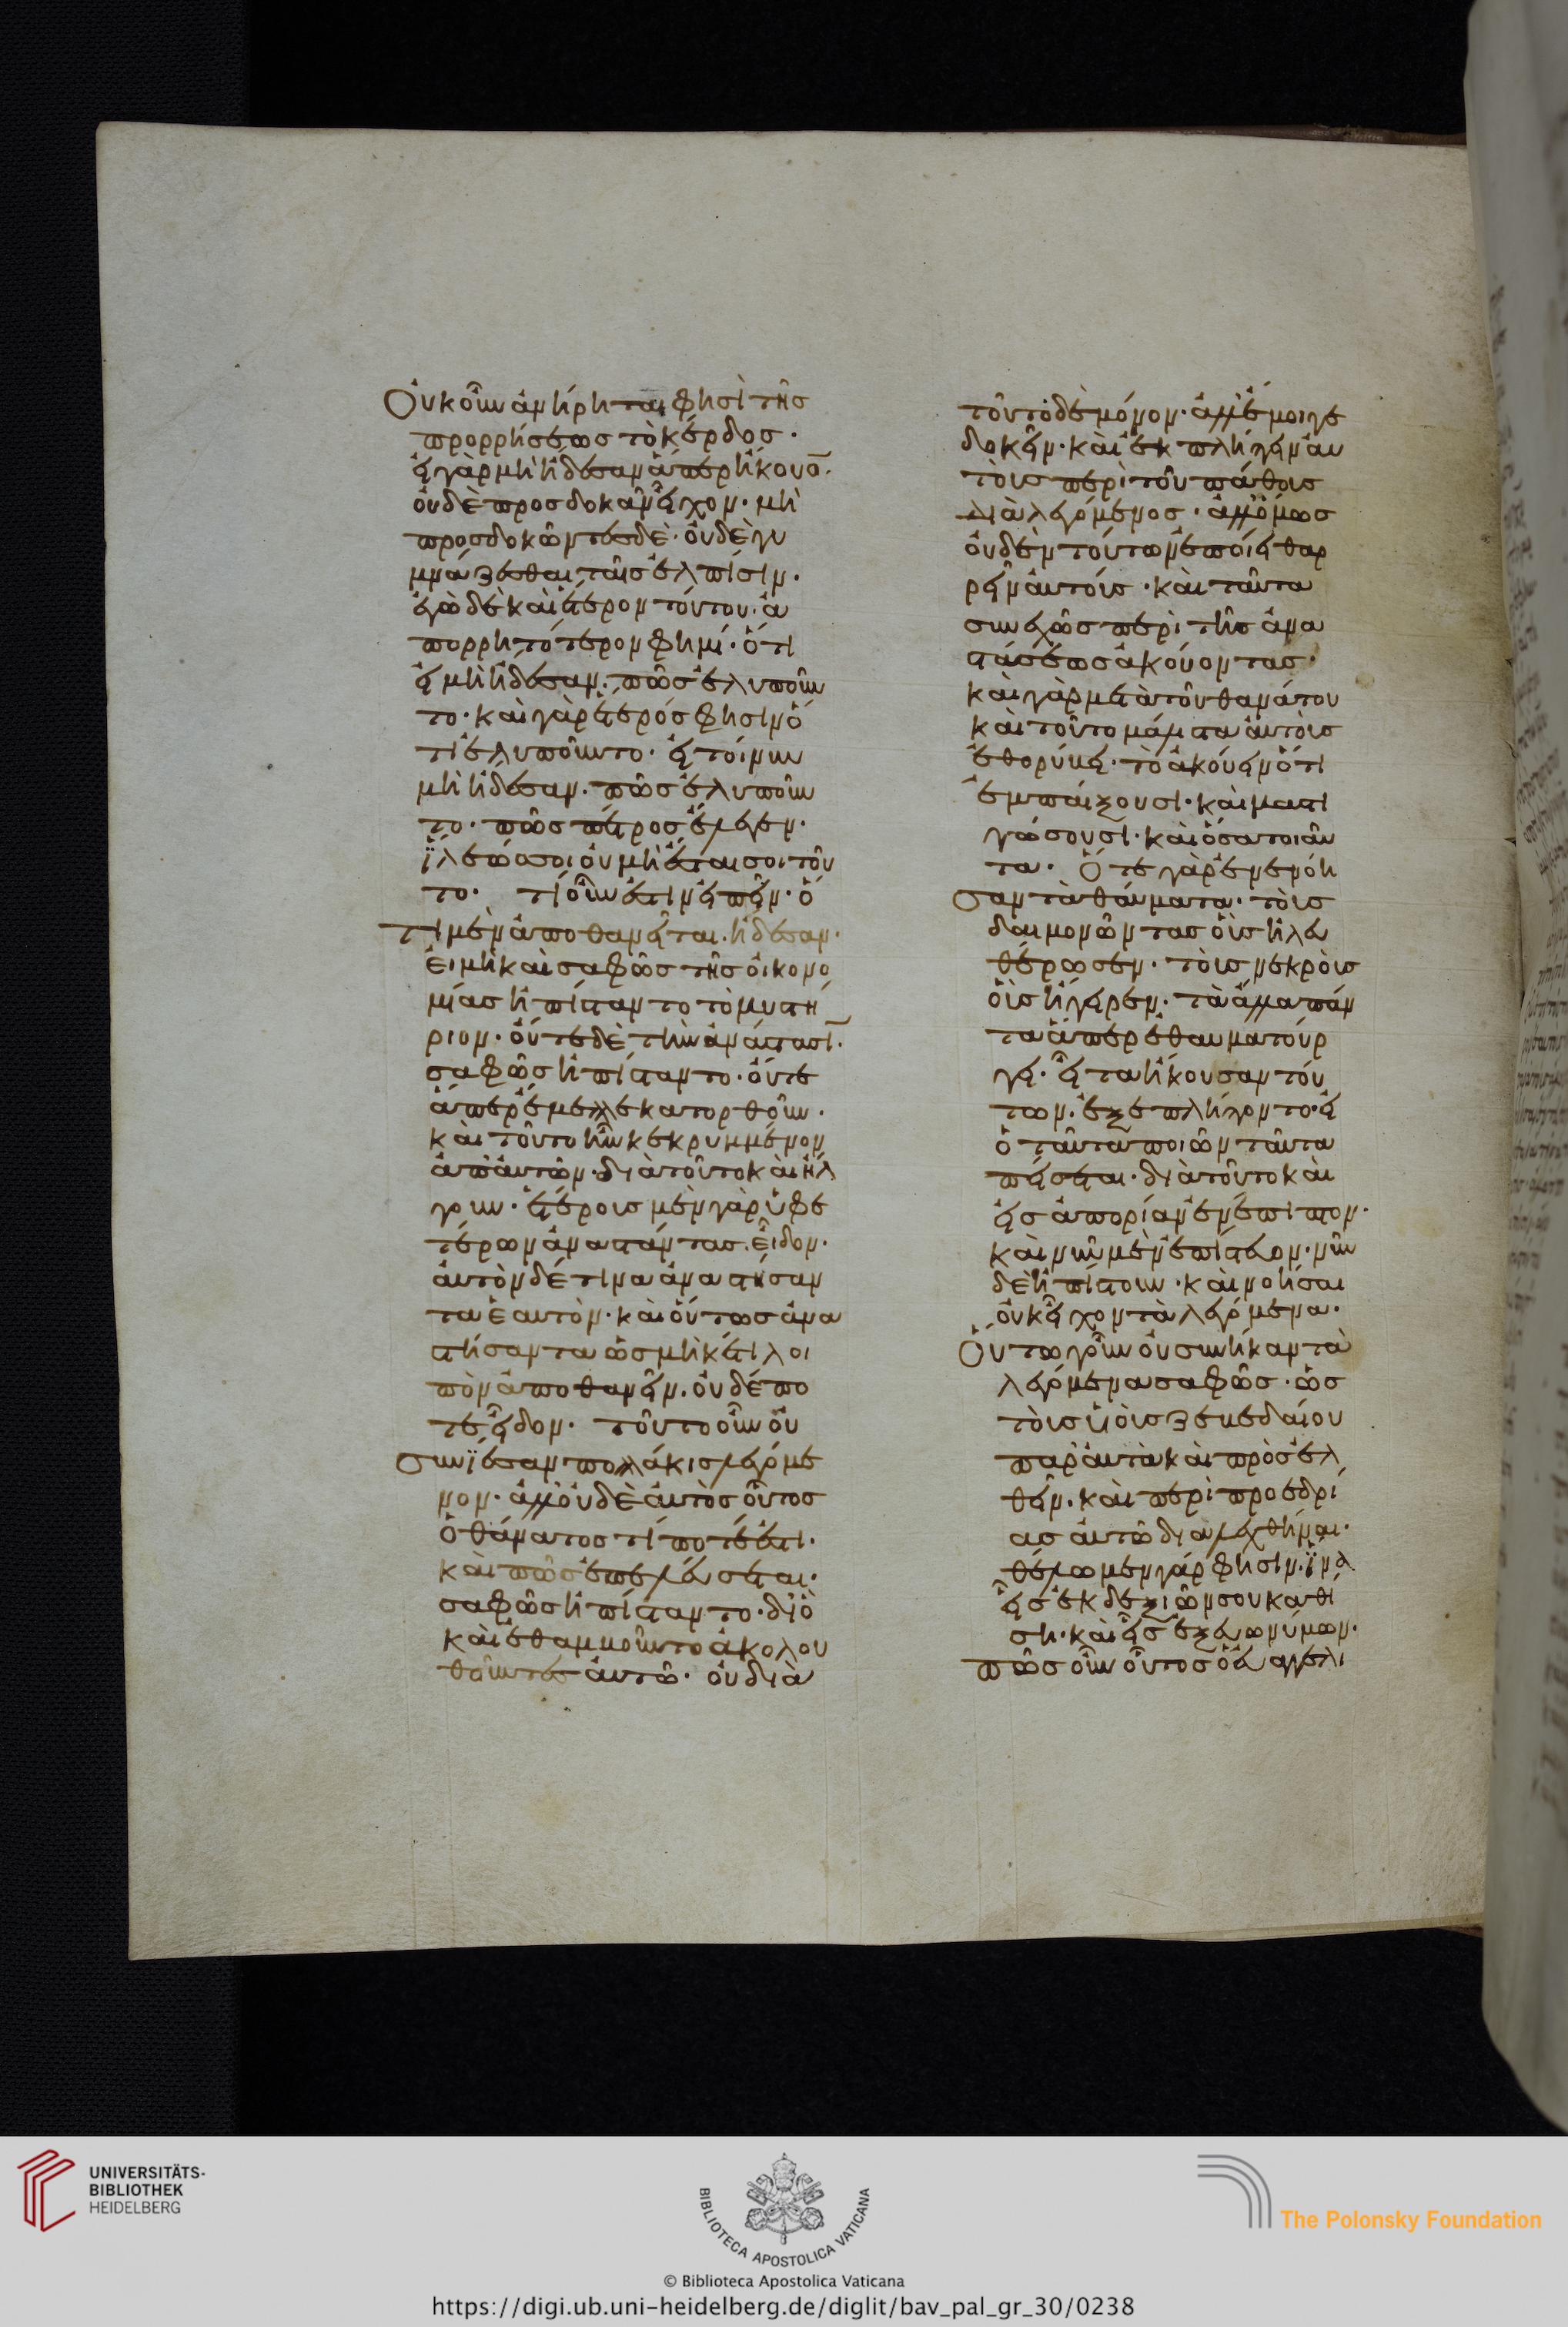 Οὐκοῦν ἀνήρηται φησὶ τῆς
προρρήσεως τὸ κέρδος·
εἰ γὰρ μὴ ἤδεσαν ἅπερ ἤκουō·
οὐδὲ προσδοκᾶν εἶχον· μὴ
προσδοκῶντες δὲ· οὐδὲ γυ
μνάζεσθαι ταῖς ἐλπίσιν·
ἐγὼ δὲ καὶ ἕτερον τούτου ἀ
πορρητότερον φημί· ὅτι
εἰ μὴ ἤδεσαν· πῶς ἐλυποῦν
το· καὶ γὰρ ἕτερός φησιν ὅ
τι ἐλυποῦντο· εἰ τοίνυν
μὴ ἤδεσαν· πῶς ἐλυποῦν
το· πῶς πέτρος ἔλεγεν·
ἵλεώς σοι οὐ μὴ ἔσται σοι τοῦ
το· τί οὖν ἔστιν εἰπεῖν· ὅ
τι μὲν ἀποθανεῖται ἤδεσαν·
εἰ μὴ καὶ σαφῶς τῆς οἰκονο
μίας ἠπίσταντο τὸ μυστή
ριον· οὔτε δὲ τὴν ἀνάστασῑ·
σαφῶς ἠπίσταντο· οὔτε
ἅπερ ἔμελλε κατορθοῦν·
καὶ τοῦτο ἦν κεκρυμμένον
ἀπ' αὐτῶν· διὰ τοῦτο καὶ ἤλ
γουν· ἑτέρους μὲν γὰρ ὑφ' ἑ
τέρων ἀναστάντας εἶδον·
αὐτὸν δέ τινα ἀναστήσαν
τα ἑαυτὸν· καὶ οὕτως ἀνα
στήσαντα ὡς μηκέτι λοι
πὸν ἀποθανεῖν· οὐδέπο
τε εἶδον· τοῦτο οὖν οὐ
συνίεσαν πολλάκις λεγόμε
νον· ἀλλ' οὐδὲ αὐτὸς οὗτος
ὁ θάνατος τί ποτέ ἐστι·
καὶ πῶς ἐπελεύσεται·
σαφῶς ἠπίσταντο· διὸ
καὶ ἐθαμβοῦντο ἀκολου
θοῦντες αὐτῶ· οὐ διὰ
τοῦτο δὲ μόνον· ἀλλ' ἔμοιγε
δοκεῖν· καὶ ἐκπλήττειν αὐ
τοὺς περὶ τοῦ πάθους
διαλεγόμενος· ἀλλ' ὅμως
οὐδὲν τούτων ἐποίει θαρ
ρεῖν αὐτούς· καὶ ταῦτα
συνεχῶς περὶ τῆς ἀνα
στάσεως ἀκούοντας·
καὶ γὰρ μετὰ τοῦ θανάτου
καὶ τοῦτο μάλιστα αὐτοὺς
ἐθορύβει· τὸ ἀκούειν ὅτι
ἐμπαίξουσι· καὶ μαστι
γώσουσι· καὶ ὅσα τοιαῦ
τα· Ὅτε γὰρ ἐνενόη
σαν τὰ θαύματα· τοὺς
δαιμονῶντας οὓς ἠλευ
θέρωσεν· τοὺς νεκροὺς
οὓς ἤγειρεν· τὰ ἄλλα πάν
τα ἅπερ ἐθαυματούρ
γει· εἶτα ἤκουσαν τού
των· ἐξεπλήττοντο· εἰ
ὁ ταῦτα ποιῶν ταῦτα
πείσεται· διὰ τοῦτο καὶ
εἰς ἀπορίαν ἐνέπιπτον·
καὶ νῦν μὲν ἐπίστευον· νῦν
δὲ ἠπίστουν· καὶ νοῆσαι
οὐκ εἶχον τὰ λεγόμενα·
Οὕτω γοῦν οὐ συνῆκαν τὰ
λεγόμενα σαφῶς· ὡς
τοὺς υἱοὺς ζεβεδαίου
παρ' αὐτὰ καὶ προσελ
θεῖν· καὶ περὶ προεδρί
ας αὐτῶ διαλεχθῆναι·
θέλωμεν γάρ φησιν· ἵνα
εἷς ἐκ δεξιῶν σου καθί
ση· καὶ εἷς ἐξ εὐωνύμων·
πῶς οὖν οὗτος ὁ εὐαγγελι
UNIVERSITÄTS-
BIBLIOTHEK
HEIDELBERG
BIBLIOTECA APOSTOLICA VATICANA
The Polonsky Foundation
© Biblioteca Apostolica Vaticana
https://digi.ub.uni-heidelberg.de/diglit/bav_pal_gr_30/0238